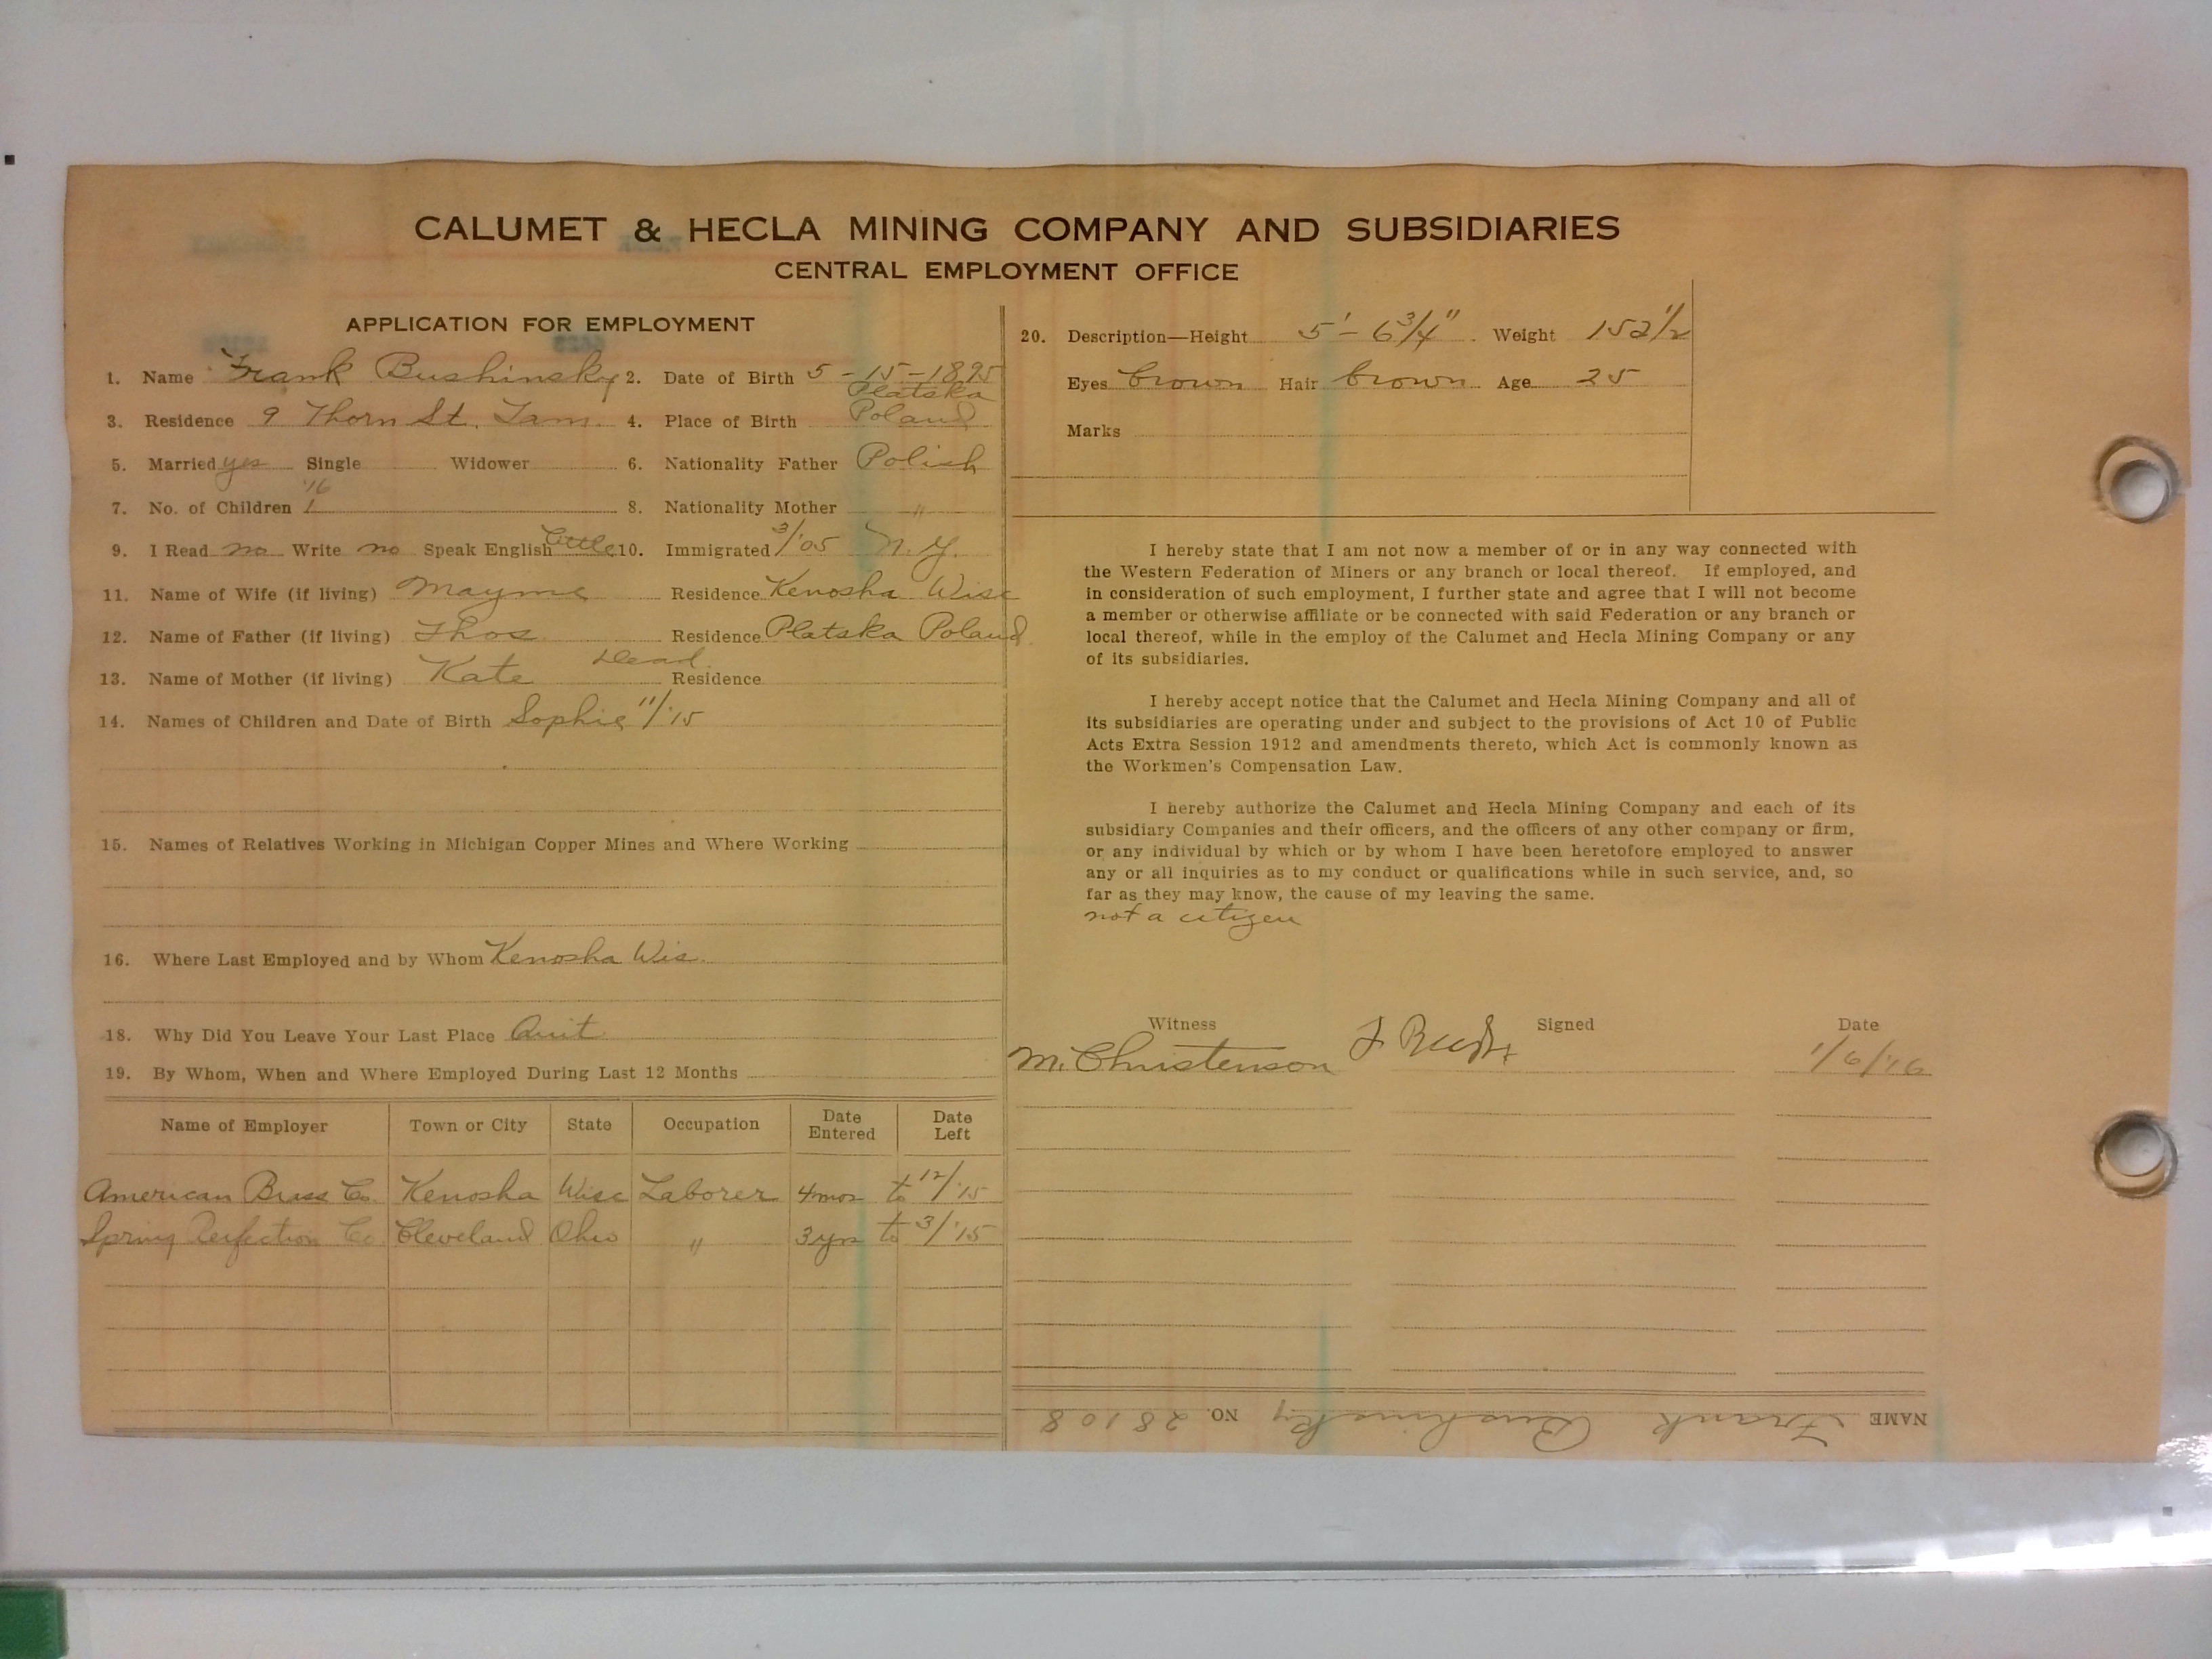 CALUMET & HECLA MINING COMPANY AND SUBSIDIARIES
CENTRAL EMPLOYMENT OFFICE
APPLICATION FOR EMPLOYMENT
1. Name Frank Bushinsky 2. Date of Birth 5-15-1895
Platska
3. Residence 9 Thorn St. Tam. 4. Place of Birth Poland
5. Married yes Single Widower 6. Nationality Father Polish
'16
7. No. of Children 1 8. Nationality Mother "
9. I Read no Write no Speak English little 10. Immigrated 3/'05 N.Y.
11. Name of Wife (if living) Mayme Residence Kenosha Wisc
12. Name of Father (if living) Thos Residence Platska Poland
13. Name of Mother (if living) Kate Dead Residence
14. Names of Children and Date of Birth Sophie 11/'15
15. Names of Relatives Working in Michigan Copper Mines and Where Working
16. Where Last Employed and by Whom Kenosha Wis.
18. Why Did You Leave Your Last Place Quit
19. By Whom, When and Where Employed During Last 12 Months
Name of Employer Town or City State Occupation Date Entered Date Left
American Brass Co. Kenosha Wisc Laborer 4 mos to 12/'15
Spring Perfection Co Cleveland Ohio " 3 yrs to 3/'15
20. Description—Height 5'-6 3/4" Weight 152 1/2
Eyes brown Hair brown Age 25
Marks
I hereby state that I am not now a member of or in any way connected with
the Western Federation of Miners or any branch or local thereof. If employed, and
in consideration of such employment, I further state and agree that I will not become
a member or otherwise affiliate or be connected with said Federation or any branch or
local thereof, while in the employ of the Calumet and Hecla Mining Company or any
of its subsidiaries.
I hereby accept notice that the Calumet and Hecla Mining Company and all of
its subsidiaries are operating under and subject to the provisions of Act 10 of Public
Acts Extra Session 1912 and amendments thereto, which Act is commonly known as
the Workmen's Compensation Law.
I hereby authorize the Calumet and Hecla Mining Company and each of its
subsidiary Companies and their officers, and the officers of any other company or firm,
or any individual by which or by whom I have been heretofore employed to answer
any or all inquiries as to my conduct or qualifications while in such service, and, so
far as they may know, the cause of my leaving the same.
not a citizen
Witness Signed Date
M. Christenson F. 1/6/'16
NAME Frank Bushinsky NO. 28108